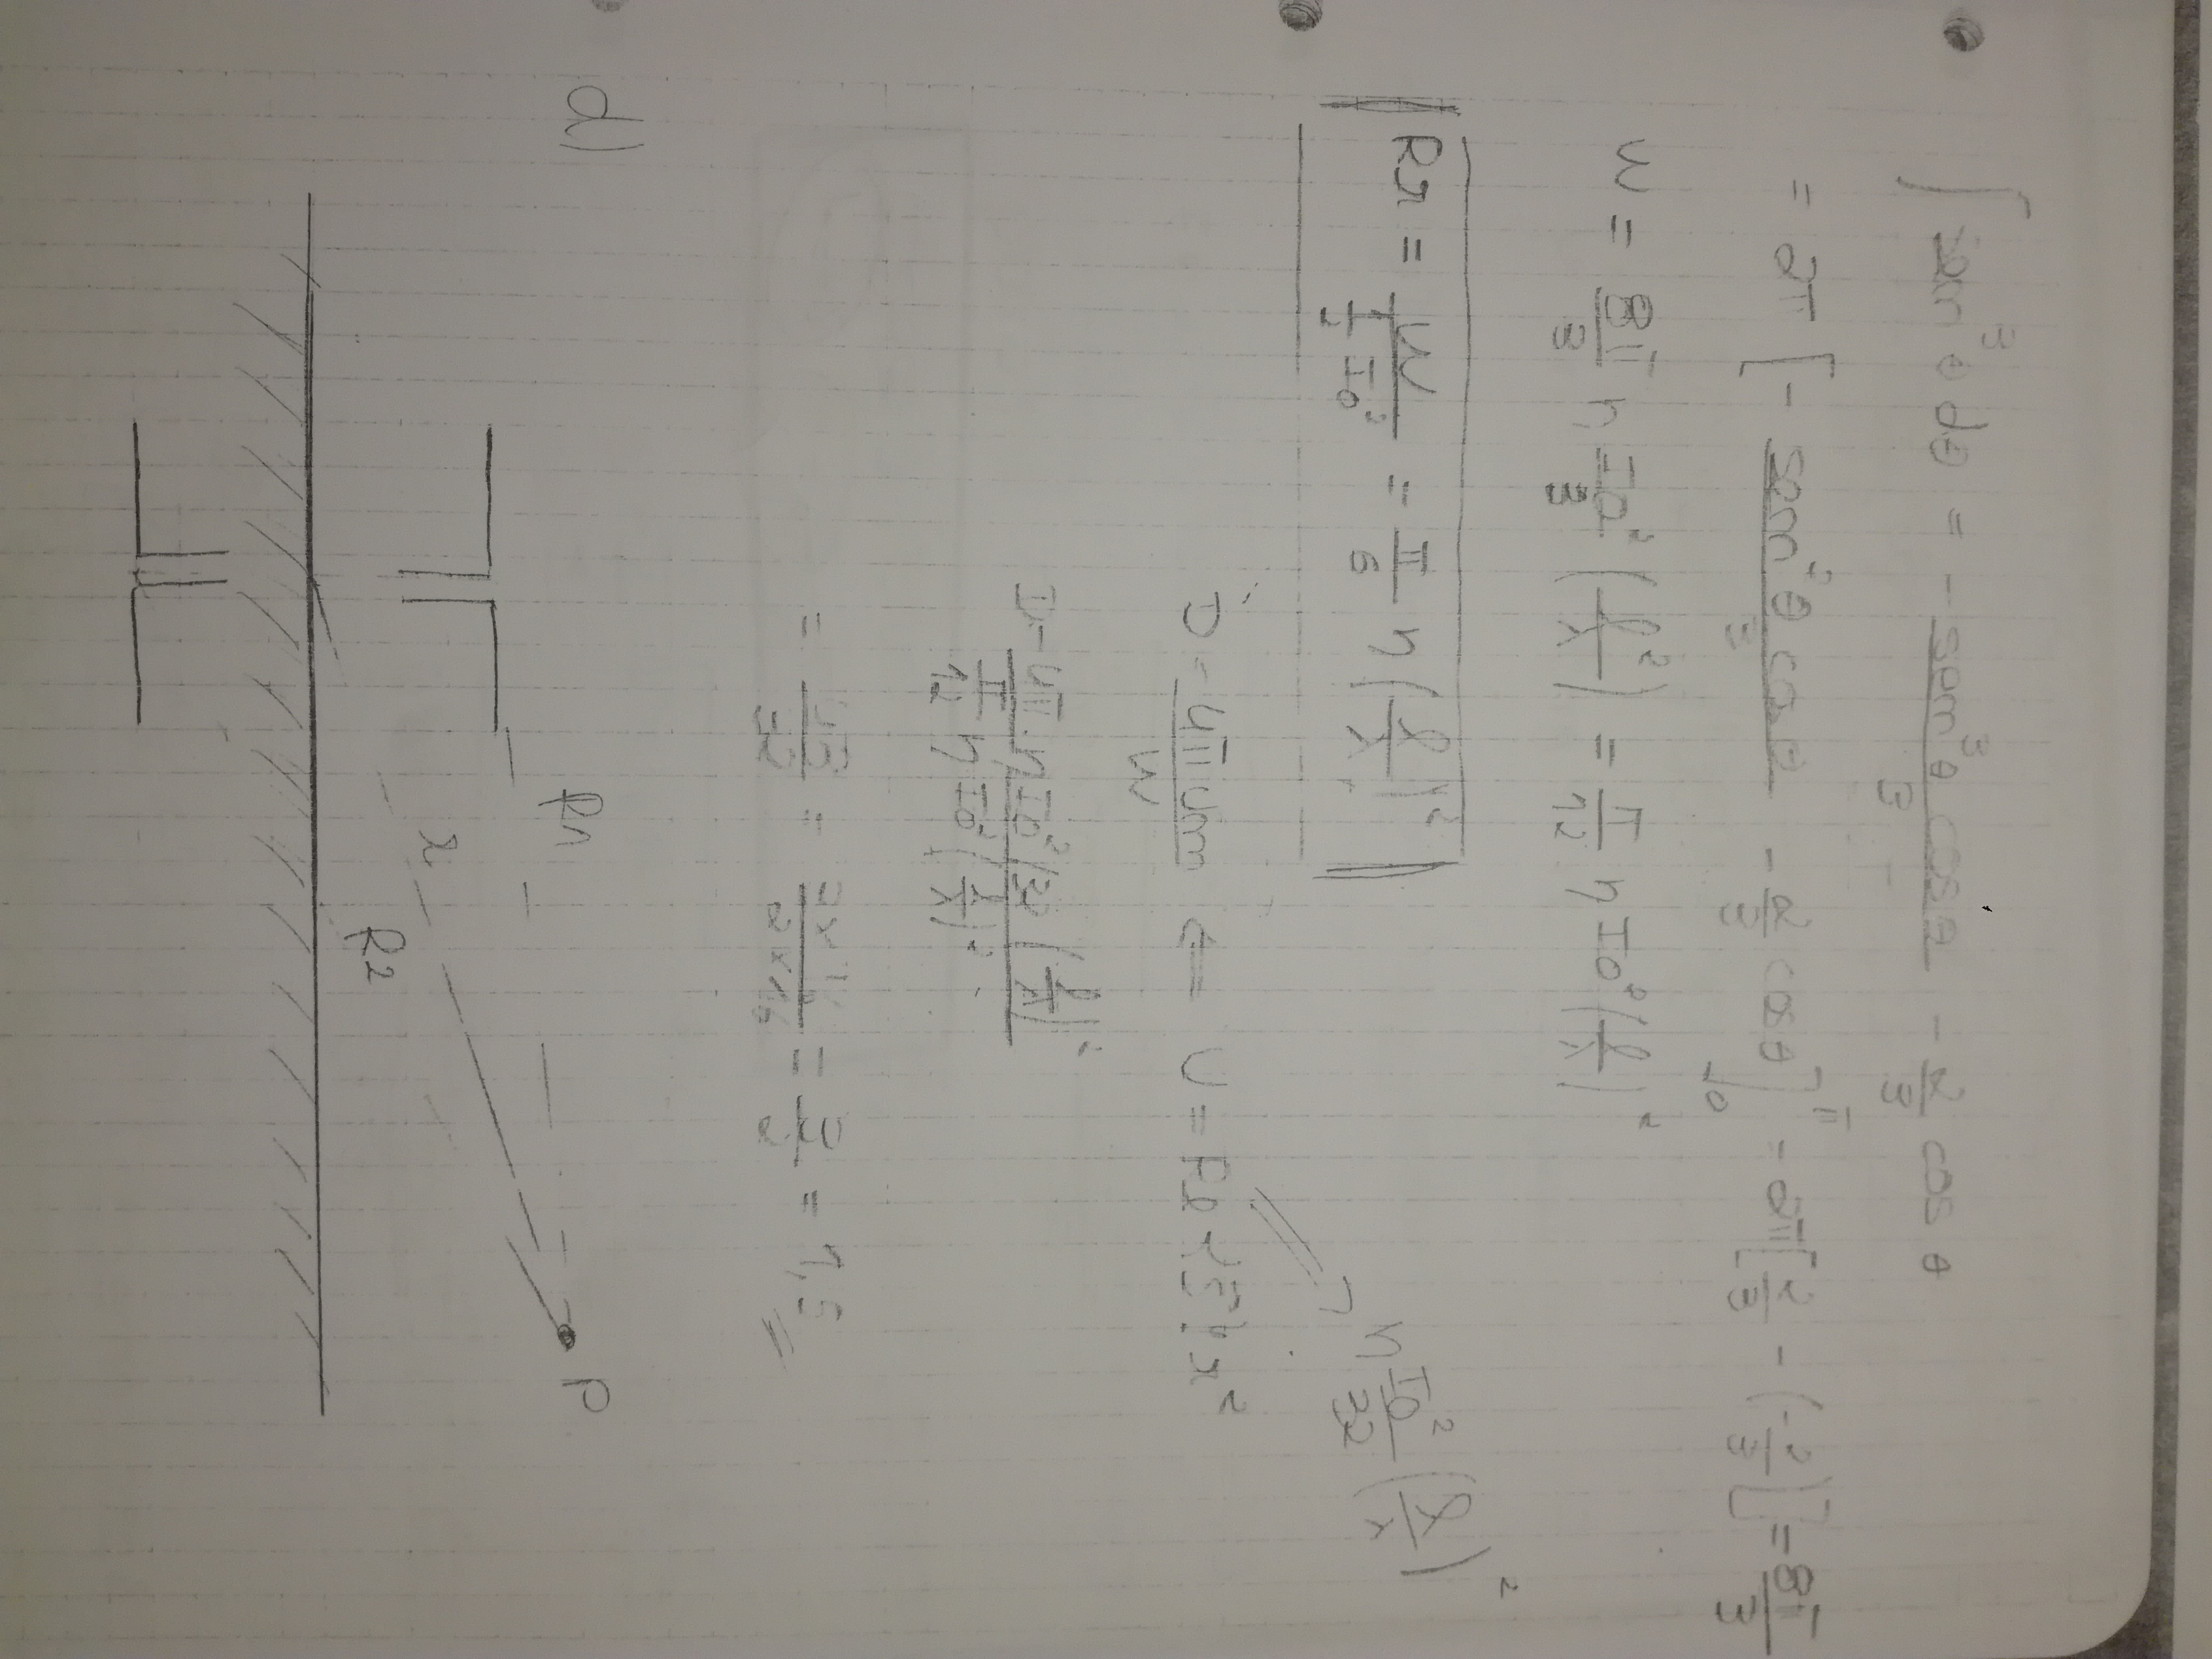 ∫ sen³θ dθ = - sen³θ cosθ / 3 - 2/3 cos θ
= 2π [ - sen²θ cosθ / 3 - 2/3 cosθ ]₀^π = 2π [ 2/3 - ( -2/3 ) ] = 8π/3
W = 8π/3 η I0²/3 ( l²/λ ) = π/12 η I0² ( l/λ )²
Rr = W / ( 1/2 I0² ) = π/6 η ( l/λ )²
η I0²/32 ( l/λ )²
D = 4π Um / W ⇐ U = Re {S} r²
D = 4π · η I0²/32 ( l/λ )² / ( π/12 η I0² ( l/λ )² )
= = = = 1,5
d)
R1
P
r
R2